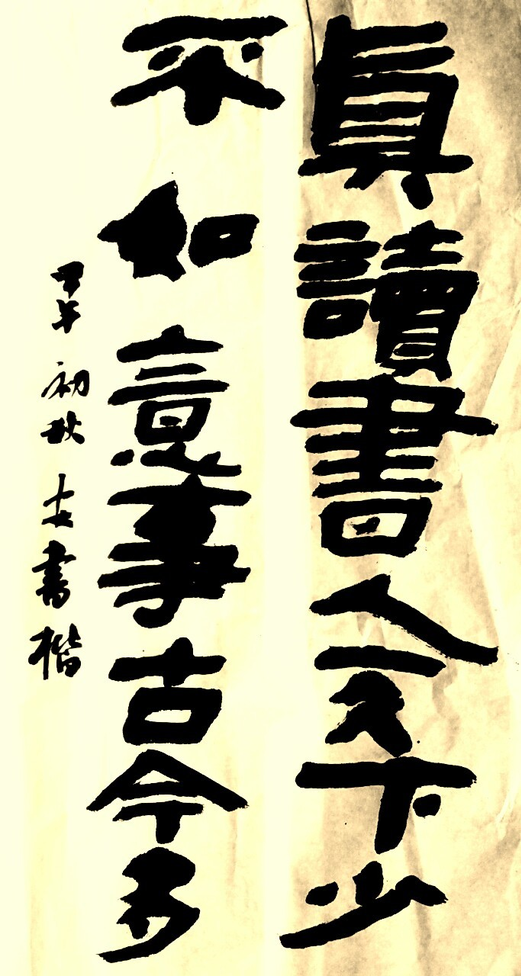 真讀書人天下少
不如意事古今多
甲午初秋士書楷